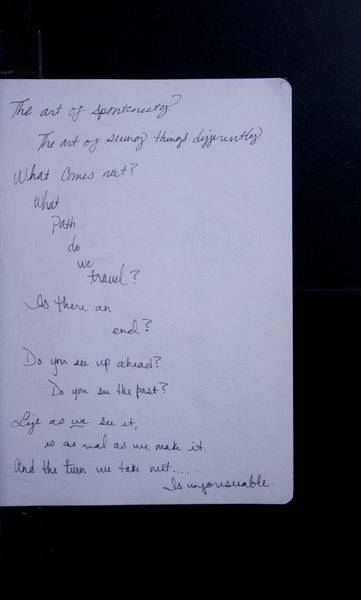 The art of spontenuity?
The art of seeing things differently
What comes next?
What
Path
do
we
travel?
Is there an
end?
Do you see up ahead?
Do you see the past?
Life as we see it,
is as real as we make it.
And the turn we take next....
Is unforseeable.